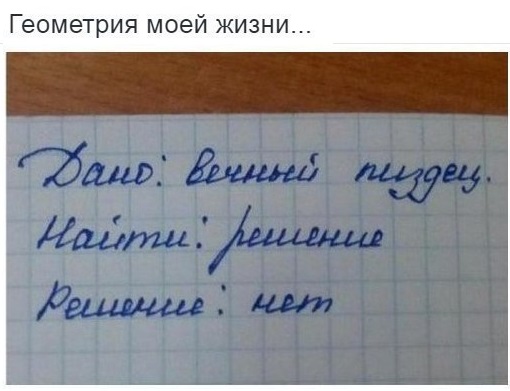 Геометрия моей жизни...
Дано: вечный пиздец.
Найти: решение
Решение: нет